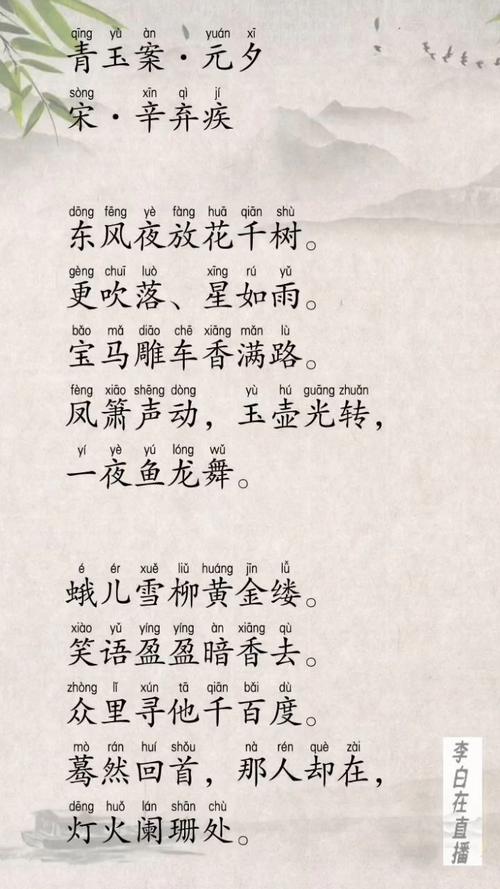 qīng yù àn yuán xī
青玉案·元夕
sòng xīn qì jí
宋·辛弃疾
dōng fēng yè fàng huā qiān shù
东风夜放花千树。
gèng chuī luò xīng rú yǔ
更吹落、星如雨。
bǎo mǎ diāo chē xiāng mǎn lù
宝马雕车香满路。
fèng xiāo shēng dòng yù hú guāng zhuǎn
凤箫声动，玉壶光转，
yí yè yú lóng wǔ
一夜鱼龙舞。
é ér xuě liǔ huáng jīn lǚ
蛾儿雪柳黄金缕。
xiào yǔ yíng yíng àn xiāng qù
笑语盈盈暗香去。
zhòng lǐ xún tā qiān bǎi dù
众里寻他千百度。
mò rán huí shǒu nà rén què zài
蓦然回首，那人却在，
dēng huǒ lán shān chù
灯火阑珊处。
李白在直播